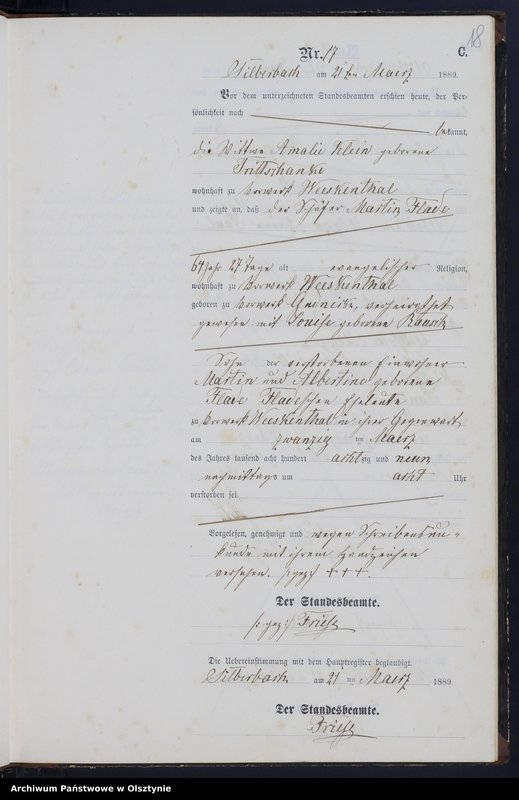 18
Nr. 17
C.
Silberbach am 21ten Maerz 1889.
Vor dem unterzeichneten Standesbeamten erschien heute, der Per-
sönlichkeit nach
bekannt,
die Wittwe Amalie Klein geborene
wohnhaft zu Vorwerk Weeskenthal
und zeigte an, daß der Schäfer Martin Flade
64 Jahr 27 Tage alt evangelischer Religion,
wohnhaft zu Vorwerk Weeskenthal
geboren zu Vorwerk verheirathet
gewesen mit Louise geborene
Sohn der verstorbenen Einwohner
Martin und Albertine geborene
Flade Fladeschen Eheleute
zu Vorwerk Weeskenthal in ihrer Gegenwart
am zwanzig ten Maerz
des Jahres tausend acht hundert achtzig und neun
nachmittags um acht Uhr
verstorben sei
Vorgelesen, genehmigt und wegen Schreibensun-
kunde mit ihrem Handzeichen
versehen. (:gez:) + + +.
Der Standesbeamte.
(:gez:) Friese
Die Uebereinstimmung mit dem Hauptregister beglaubigt.
Silberbach am 21 ten Maerz 1889.
Der Standesbeamte.
Friese
Archiwum Państwowe w Olsztynie